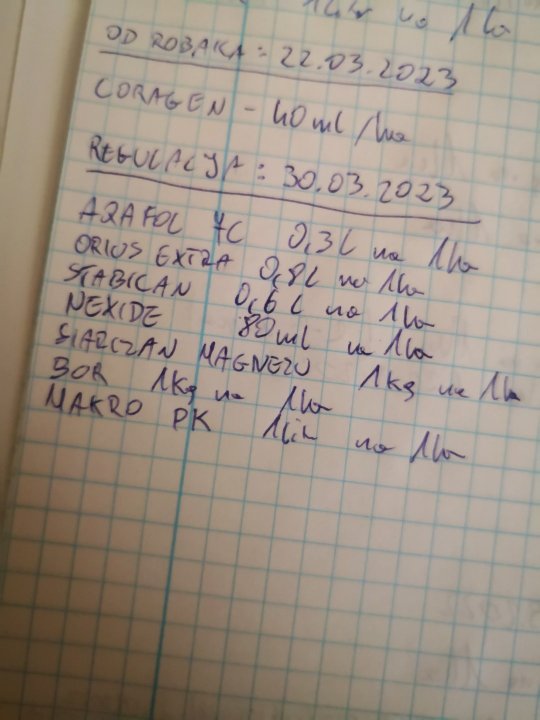 na 1ha
OD ROBAKA : 22.03.2023
CORAGEN - 40ml/ha
REGULACJA : 30.03.2023
AZAFOL 7C 0,3L na 1ha
ORIUS EXTRA 0,8L na 1ha
STABICAN 0,6L na 1ha
NEXIDE 80ml na 1ha
SIARCZAN MAGNEZU 1kg na 1ha
BOR 1kg na 1ha
MAKRO PK 1litr na 1ha